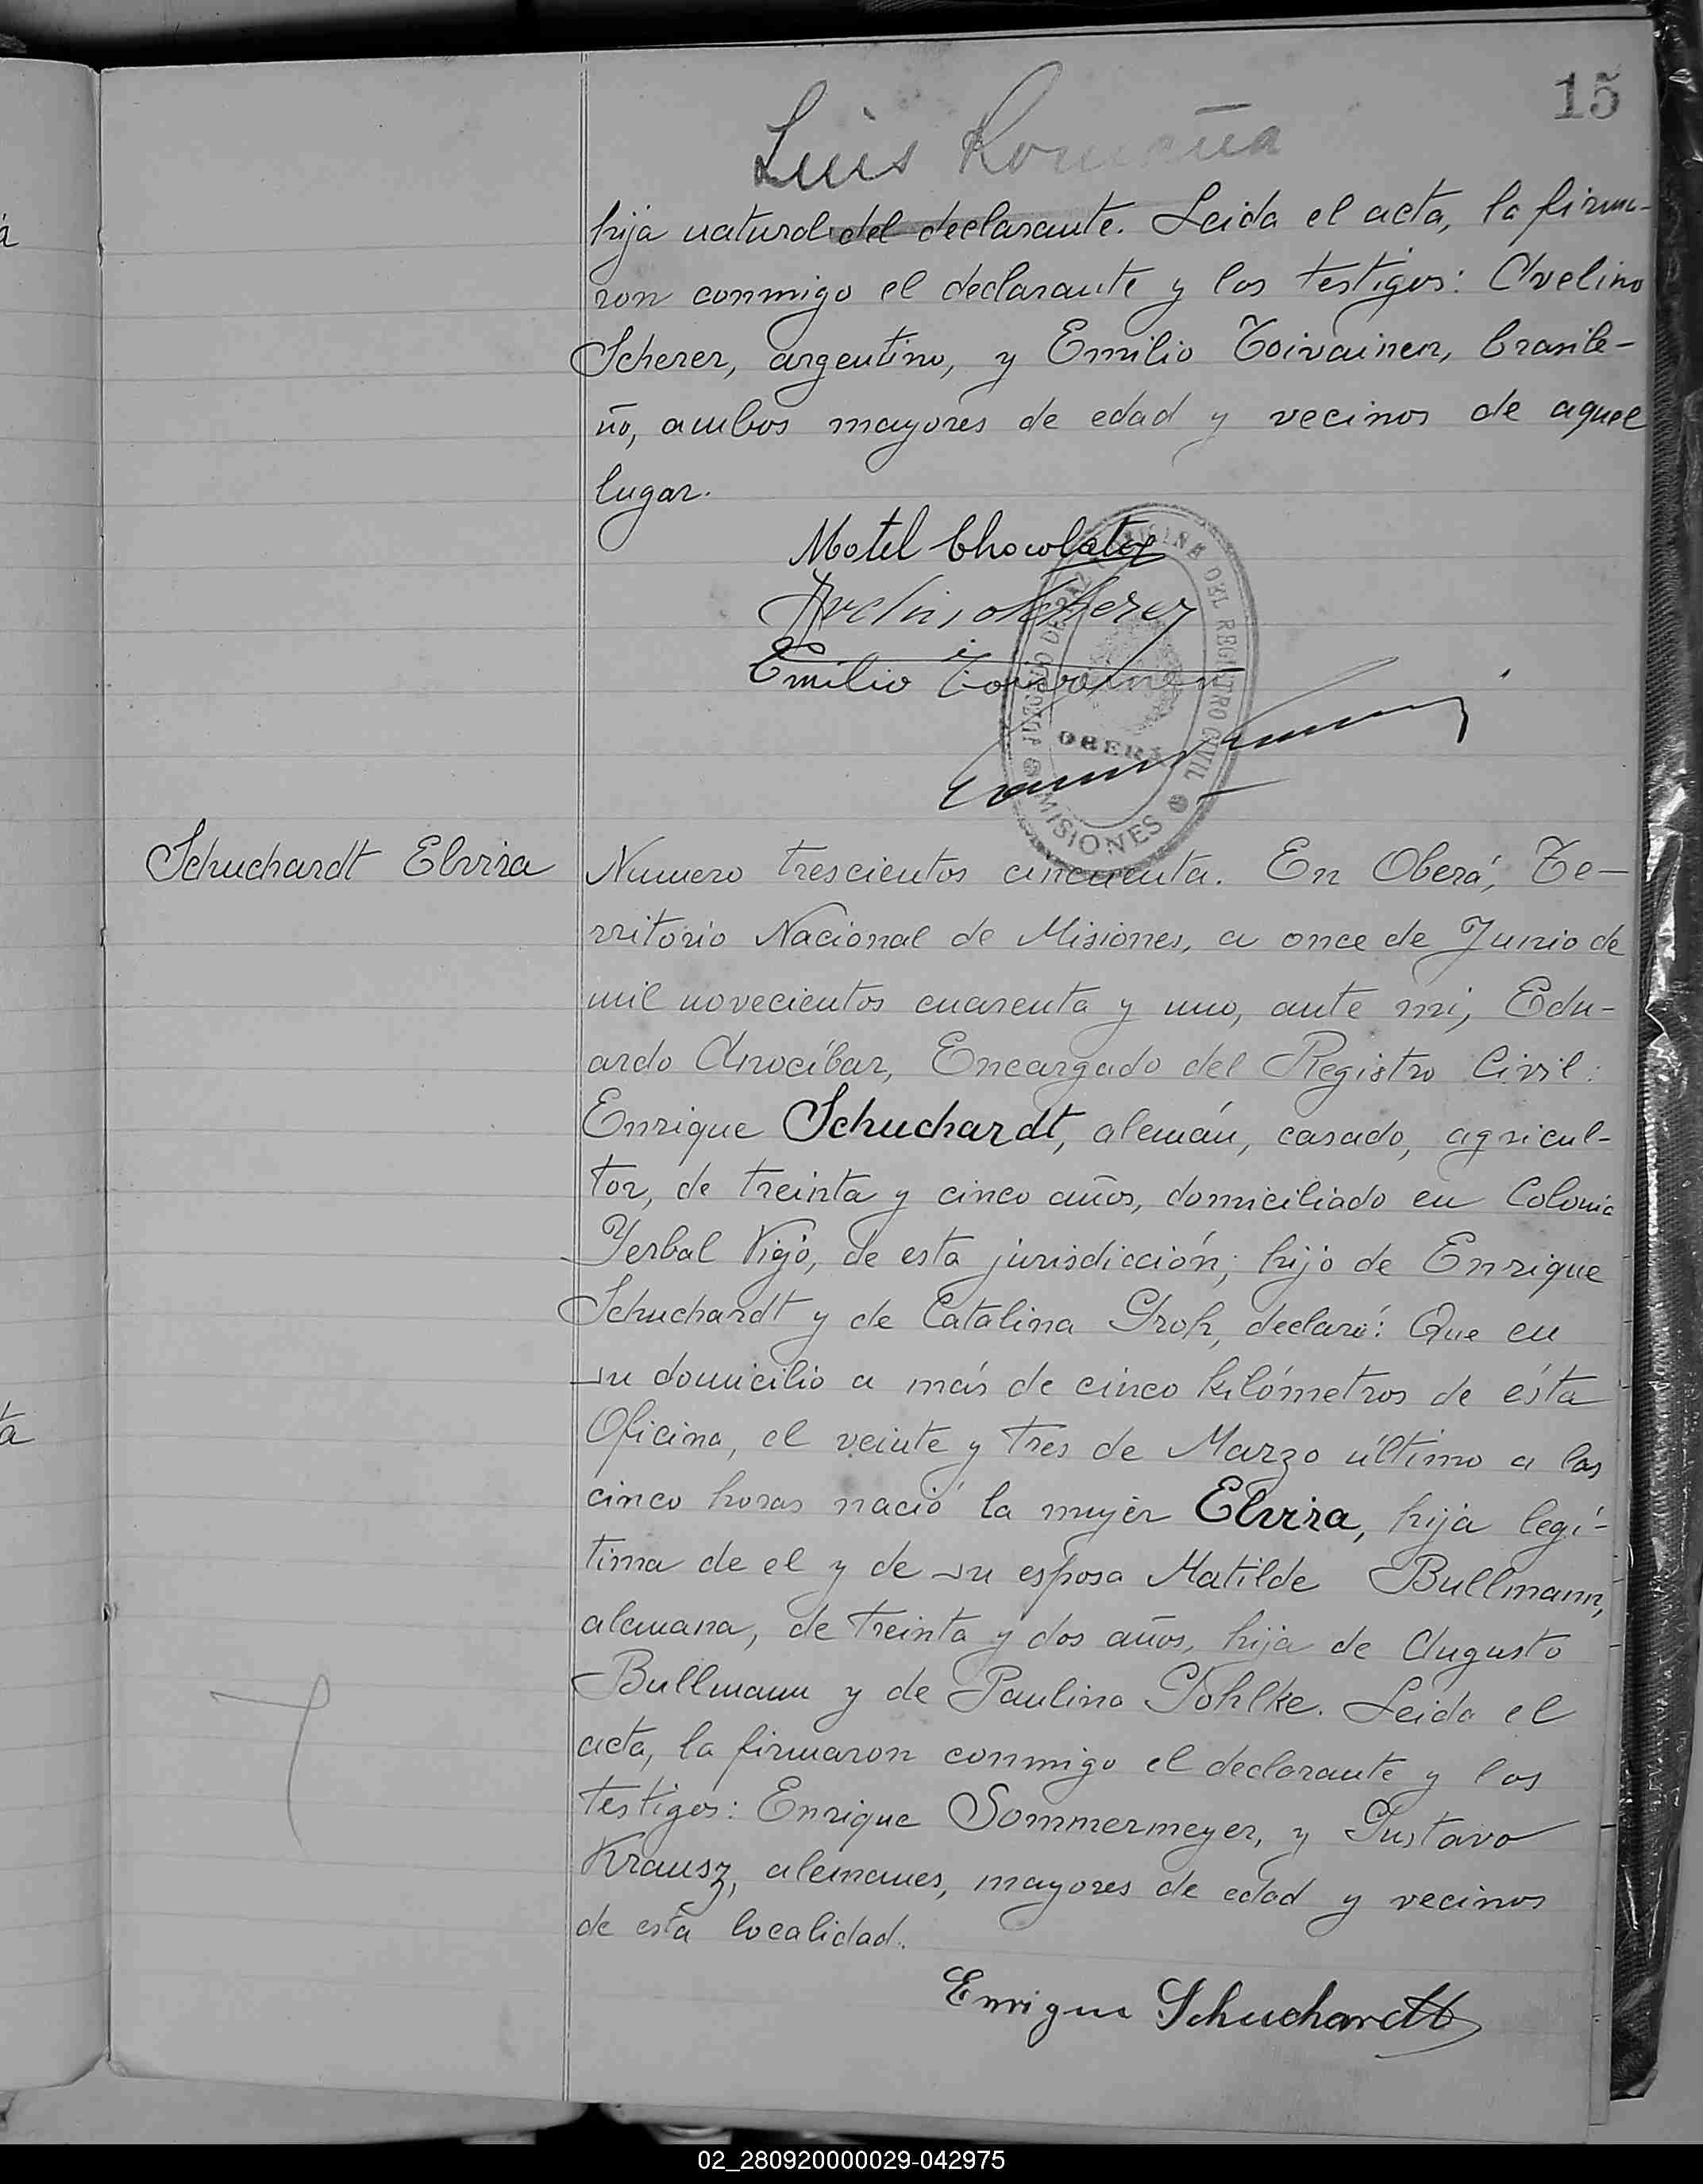 15
Luis Romaña
hija natural del declarante. Leida el acta, la firma-
ron conmigo el declarante y los testigos: Avelino
Scherer, argentino, y Emilio Toivainen, brasile-
ño, ambos mayores de edad y vecinos de aquel
lugar.
Motel Chocolate
Avelino Scherer
Emilio Toivainen
OFICINA DEL REGISTRO CIVIL
OBERÁ
MISIONES
Schuchardt Elvira
Numero trescientos cincuenta. En Oberá, Te-
rritorio Nacional de Misiones, a once de Junio de
mil novecientos cuarenta y uno, ante mi, Edu-
ardo Arrocíbar, Encargado del Registro Civil:
Enrique Schuchardt, alemán, casado, agricul-
tor, de treinta y cinco años, domiciliado en Colonia
Yerbal Viejo, de esta jurisdicción; hijo de Enrique
Schuchardt y de Catalina Groh, declaró: Que en
su domicilio a más de cinco kilómetros de ésta
Oficina, el veinte y tres de Marzo último a las
cinco horas nació la mujer Elvira, hija legí-
tima de el y de su esposa Matilde Bullmann,
alemana, de treinta y dos años, hija de Augusto
Bullmann y de Paulina Pohlke. Leida el
acta, la firmaron conmigo el declarante y los
testigos: Enrique Sommermeyer, y Gustavo
Krausz, alemanes, mayores de edad y vecinos
de esta localidad.
Enrique Schuchardt
02_280920000029-042975